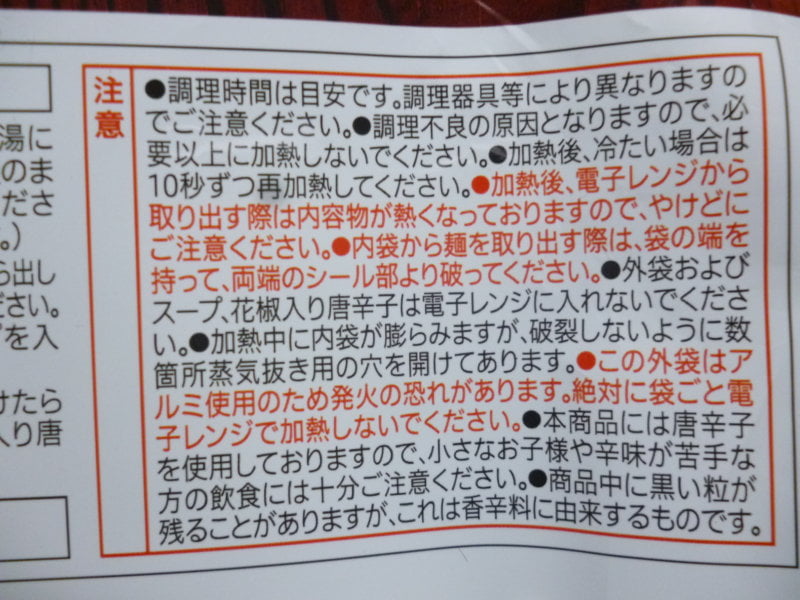 注意
●調理時間は目安です。調理器具等により異なりますの
でご注意ください。●調理不良の原因となりますので、必
要以上に加熱しないでください。●加熱後、冷たい場合は
10秒ずつ再加熱してください。●加熱後、電子レンジから
取り出す際は内容物が熱くなっておりますので、やけどに
ご注意ください。●内袋から麺を取り出す際は、袋の端を
持って、両端のシール部より破ってください。●外袋および
スープ、花椒入り唐辛子は電子レンジに入れないでくださ
い。●加熱中に内袋が膨らみますが、破裂しないように数
箇所蒸気抜き用の穴を開けてあります。●この外袋はア
ルミ使用のため発火の恐れがあります。絶対に袋ごと電
子レンジで加熱しないでください。●本商品には唐辛子
を使用しておりますので、小さなお子様や辛味が苦手な
方の飲食には十分ご注意ください。●商品中に黒い粒が
残ることがありますが、これは香辛料に由来するものです。
湯に
のまま
ださ
。)
ら出し
ださい。
を入
けたら
入り唐